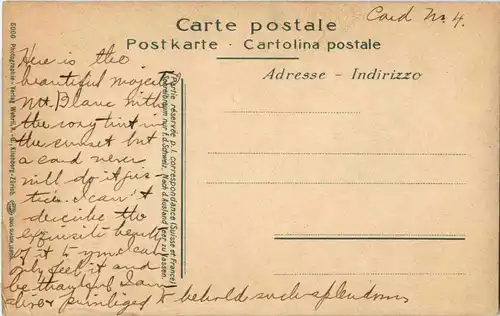 Carte postale
Card No. 4.
Postkarte - Cartolina postale
Adresse - Indirizzo
Here is the
beautiful majestic
Mt. Blanc with
the rosy tint in
the sunset but
a card never
will do it jus-
tice. I can't
describe the
exquisite beauty
of it &
only feel it and
be thankful I am
alive & privileged to behold such splendour
Partie réservée p. l. correspondance (Suisse et France)
Schreibraum nur f. d. Schweiz. Nach d. Ausland leer zu lassen.
6060 Photographie - Verlag Wehrli A.-G., Kilchberg-Zürich